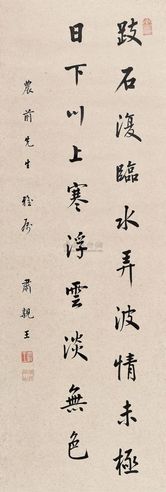 跂石復臨水弄波情未極
日下川上寒浮雲淡無色
農前先生雅屬
肅親王